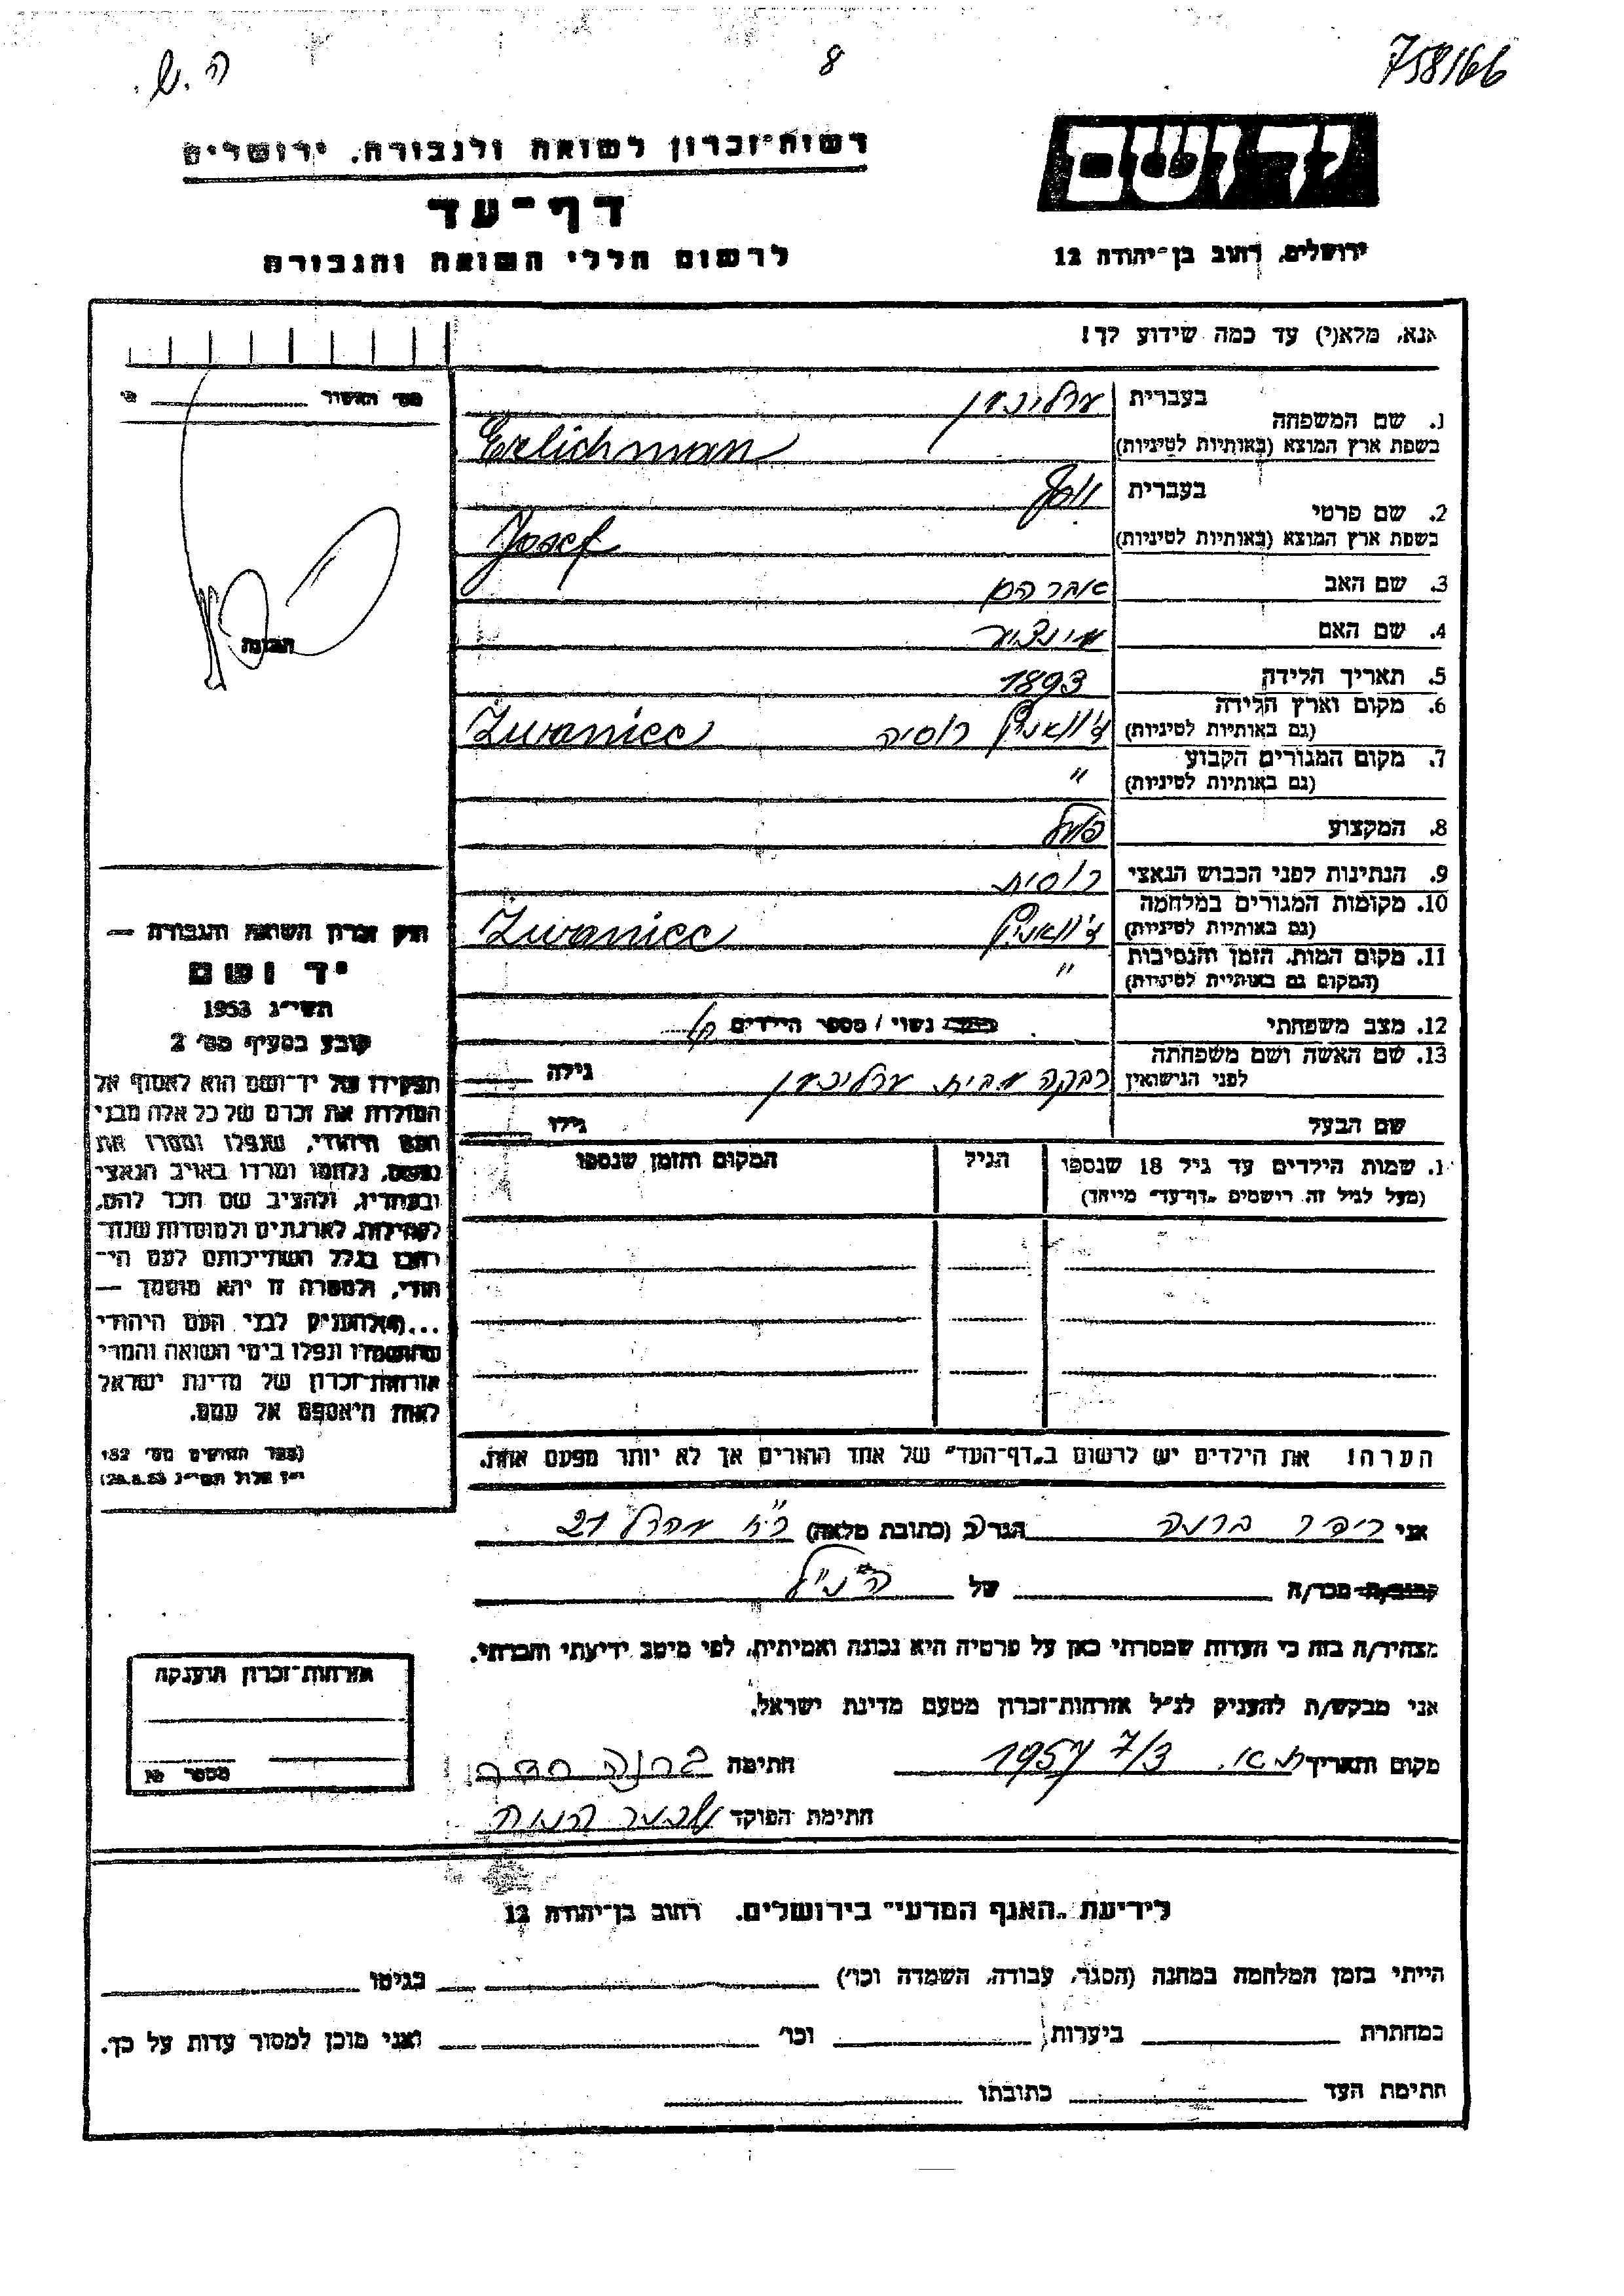 ה.ש.
8
758/66
רשות־זכרון לשואה ולגבורה, ירושלים
דף־עד
לרשום חללי השואה והגבורה
יד ושם
ירושלים, רחוב בן־יהודה 12
אנא, מלא(י) עד כמה שידוע לך!
מס' האשור
1. שם המשפחה בעברית ערליכמן
בשפת ארץ המוצא (באותיות לטיניות) Erlichman
2. שם פרטי בעברית יוסף
בשפת ארץ המוצא (באותיות לטיניות) Josef
3. שם האב אברהם
4. שם האם
5. תאריך הלידה 1893
6. מקום וארץ הלידה רוסיה Zwaniec
(גם באותיות לטיניות)
7. מקום המגורים הקבוע "
(גם באותיות לטיניות)
8. המקצוע פועל
9. הנתינות לפני הכבוש הנאצי רוסית
10. מקומות המגורים במלחמה Zwaniec
(גם באותיות לטיניות)
11. מקום המות, הזמן והנסיבות "
(המקום גם באותיות לטיניות)
12. מצב משפחתי נשוי / מספר הילדים
13. שם האשה ושם משפחתה
לפני הנישואין רבקה מבית ערליכמן גילה
שם הבעל גילו
תמונה
חוק זכרון השואה והגבורה —
יד ושם
תשי"ג 1953
קובע בסעיף מס' 2
תפקידו של יד־ושם הוא לאסוף אל
המולדת את זכרם של כל אלה מבני
העם היהודי, שנפלו ומסרו את
נפשם, נלחמו ומרדו באויב הנאצי
ובעוזריו, ולהציב שם וזכר להם,
לקהילות, לארגונים ולמוסדות שנח־
רבו בגלל השתייכותם לעם הי־
הודי, ולמטרה זו יהא מוסמך —
...(4) להעניק לבני העם היהודי
שהושמדו ונפלו בימי השואה והמרי
אזרחות־זכרון של מדינת ישראל
לאות היאספם אל עמם.
(ספר החוקים מס' 132
י"ז אלול תשי"ג 28.8.53)
1. שמות הילדים עד גיל 18 שנספו הגיל המקום והזמן שנספו
(מעל לגיל זה, רושמים "דף־עד" מיוחד)
הערה! את הילדים יש לרשום ב"דף־העד" של אחד ההורים אך לא יותר מפעם אחת.
אני ברנה הגר ב (כתובת מלאה) 21
קרוב/ה מכר/ה של הנ"ל
מצהיר/ה בזה כי העדות שמסרתי כאן על פרטיה היא נכונה ואמיתית, לפי מיטב ידיעתי והכרתי.
אני מבקש/ת להעניק לנ"ל אזרחות־זכרון מטעם מדינת ישראל.
מקום ותאריך ת"א. 7/3 1957 חתימה ברנה
חתימת הפוקד
אזרחות־זכרון הוענקה
מספר
לידיעת "האגף המדעי" בירושלים, רחוב בן־יהודה 12
הייתי בזמן המלחמה במחנה (הסגר, עבודה, השמדה וכו') בגיטו
במחתרת ביערות וכו' ואני מוכן למסור עדות על כך.
חתימת העד כתובתו